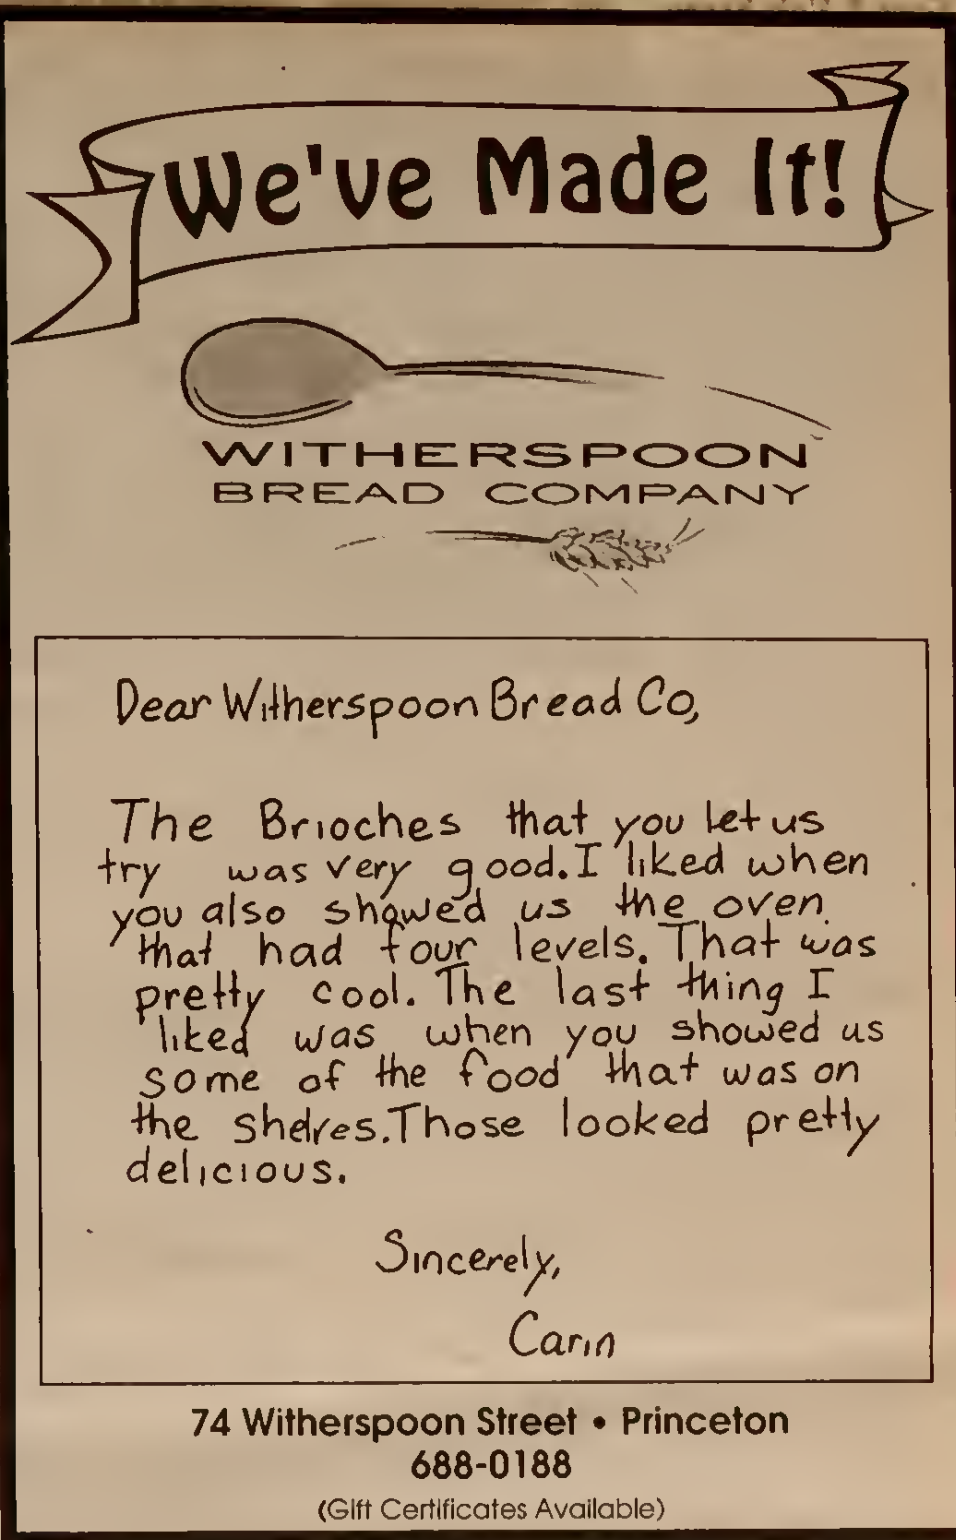 We've Made It!
WITHERSPOON
BREAD COMPANY
Dear Witherspoon Bread Co,
The Brioches that you let us
try was very good. I liked when
you also showed us the oven
that had four levels. That was
pretty cool. The last thing I
liked was when you showed us
some of the food that was on
the shelves. Those looked pretty
delicious.
Sincerely,
Carin
74 Witherspoon Street • Princeton
688-0188
(Gift Certificates Available)